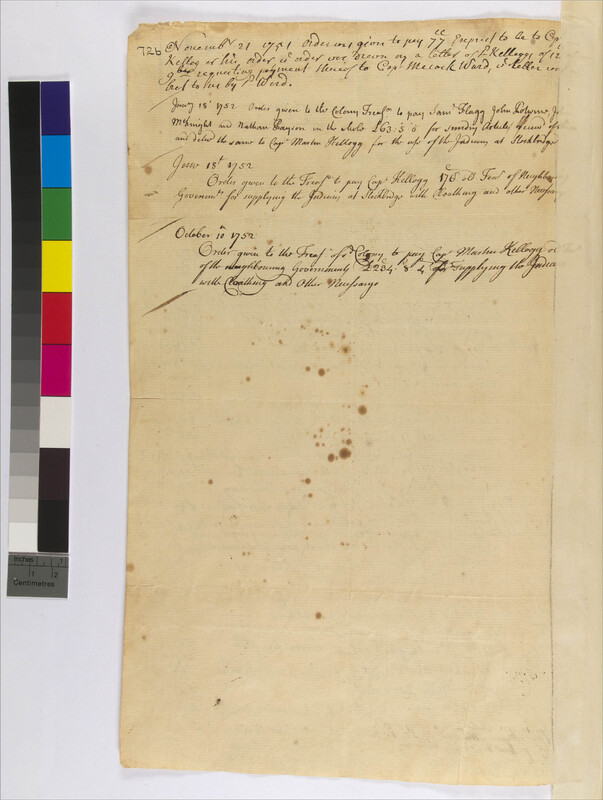 72b Novemb.r 21 1751 order was given to pay 77 Expres't to be to Cap
Kellog or his order s.d order was drawn on a letter of s.d Kelloggs of 12
9ber requesting payment thereof to Cap.t Macock Ward, s.d letter
by s.d Ward.
Janry 18 1752 Order given to the Colony Treas.r to pay Sam.ll Flagg John
McKnight and Nathan Grayson in the whole £63:5:6 for sundry Articles
and deliv.d the same to Cap.t Martin Kellogg for the use of the Indians at Stockbridge
June 18.t 1752
Order given to the Treas.r to pay Cap.t Kellogg old Ten.r of Neighb
Governm.ts for supplying the Indians at Stockbridge with Cloathing and other Nessary
October 10.th 1752
Order given to the Treas.r of s.d Colony to pay Cap.t Martin Kellogg
of the neighbouring Governments £234:8:4 for Supplying the India
with Cloathing and Other Nessarys
Inches
1
2
Centimetres